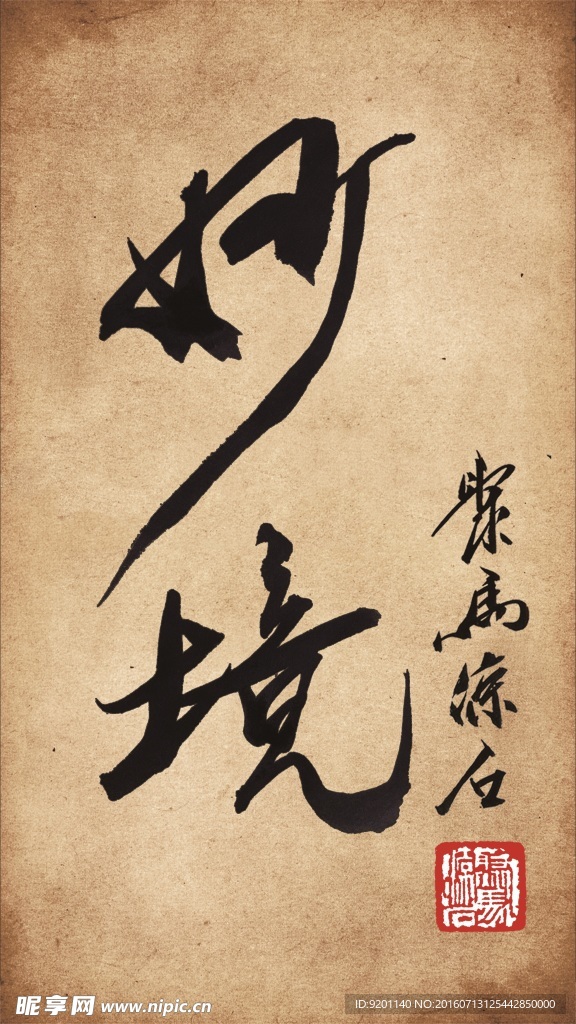 妙境
聚馬涼石
昵享网 www.nipic.cn
ID:9201140 NO:20160713125442850000